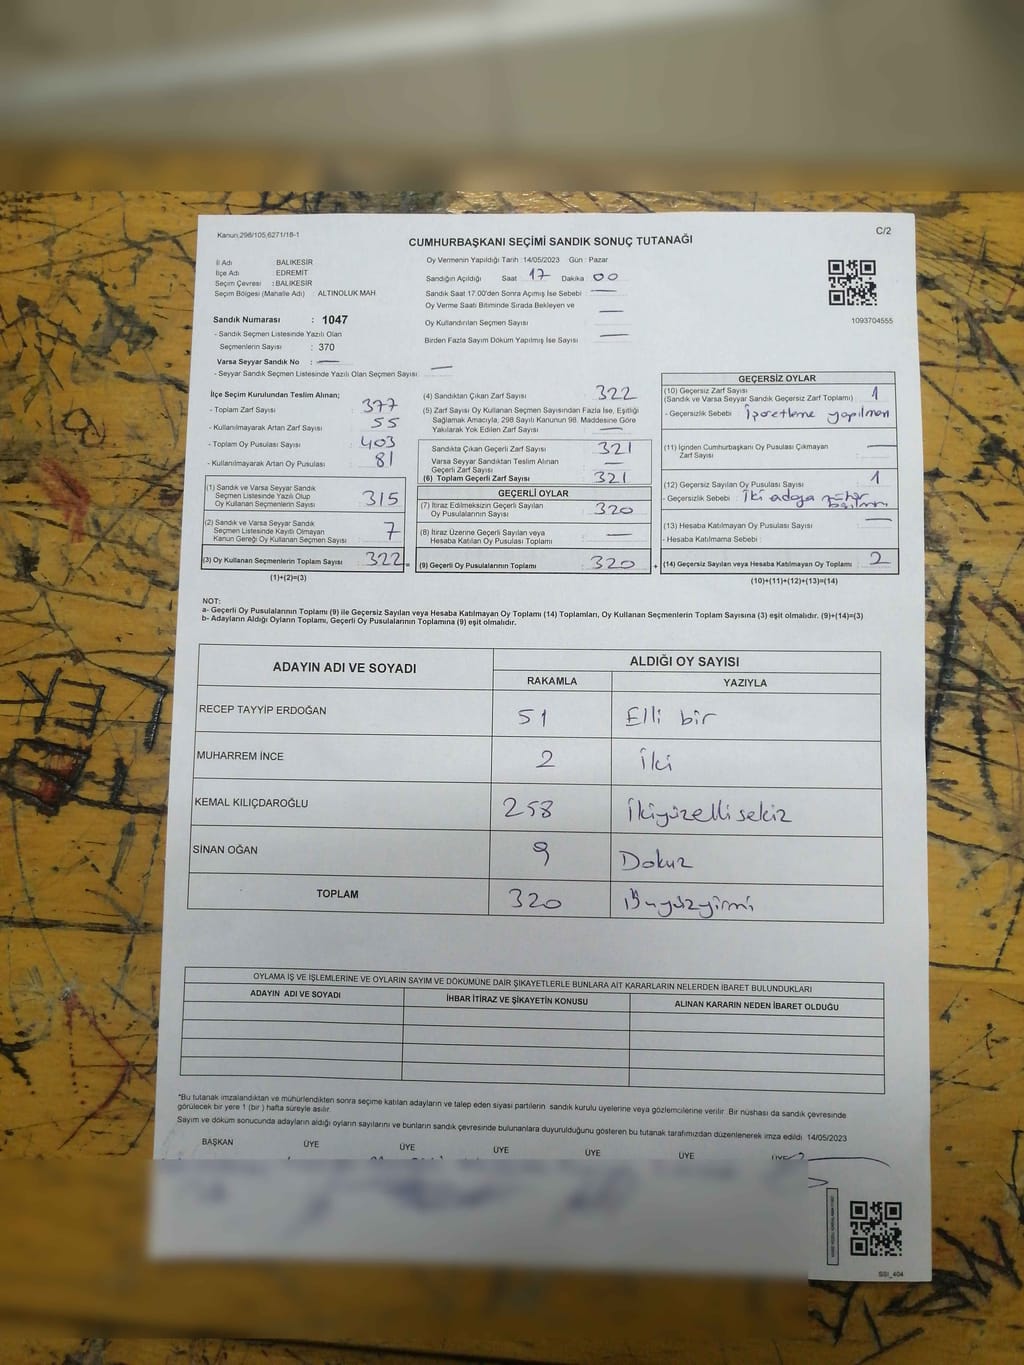 Kanun:298/105,6271/18-1
C/2
CUMHURBAŞKANI SEÇİMİ SANDIK SONUÇ TUTANAĞI
İl Adı : BALIKESİR
İlçe Adı : EDREMİT
Seçim Çevresi : BALIKESİR
Seçim Bölgesi (Mahalle Adı) : ALTINOLUK MAH
Sandık Numarası : 1047
- Sandık Seçmen Listesinde Yazılı Olan
Seçmenlerin Sayısı : 370
Varsa Seyyar Sandık No : —
- Seyyar Sandık Seçmen Listesinde Yazılı Olan Seçmen Sayısı: —
Oy Vermenin Yapıldığı Tarih : 14/05/2023 Gün : Pazar
Sandığın Açıldığı Saat 17 Dakika 00
Sandık Saat 17.00'den Sonra Açımış İse Sebebi : —
Oy Verme Saati Bitiminde Sırada Bekleyen ve
Oy Kullandırılan Seçmen Sayısı —
Birden Fazla Sayım Döküm Yapılmış İse Sayısı : —
1093704555
İlçe Seçim Kurulundan Teslim Alınan;
- Toplam Zarf Sayısı : 377
- Kullanılmayarak Artan Zarf Sayısı : 55
- Toplam Oy Pusulası Sayısı : 403
- Kullanılmayarak Artan Oy Pusulası : 81
(1) Sandık ve Varsa Seyyar Sandık
Seçmen Listesinde Yazılı Olup
Oy Kullanan Seçmenlerin Sayısı : 315
(2) Sandık ve Varsa Seyyar Sandık
Seçmen Listesinde Kayıtlı Olmayan
Kanun Gereği Oy Kullanan Seçmen Sayısı : 7
(3) Oy Kullanan Seçmenlerin Toplam Sayısı : 322 =
(1)+(2)=(3)
(4) Sandıktan Çıkan Zarf Sayısı : 322
(5) Zarf Sayısı Oy Kullanan Seçmen Sayısından Fazla İse, Eşitliği
Sağlamak Amacıyla, 298 Sayılı Kanunun 98. Maddesine Göre
Yakılarak Yok Edilen Zarf Sayısı : —
Sandıkta Çıkan Geçerli Zarf Sayısı : 321
Varsa Seyyar Sandıktan Teslim Alınan
Geçerli Zarf Sayısı : —
(6) Toplam Geçerli Zarf Sayısı : 321
GEÇERLİ OYLAR
(7) İtiraz Edilmeksizin Geçerli Sayılan
Oy Pusulalarının Sayısı : 320
(8) İtiraz Üzerine Geçerli Sayılan veya
Hesaba Katılan Oy Pusulası Toplamı : —
(9) Geçerli Oy Pusulalarının Toplamı : 320 +
GEÇERSİZ OYLAR
(10) Geçersiz Zarf Sayısı : 1
(Sandık ve Varsa Seyyar Sandık Geçersiz Zarf Toplamı)
- Geçersizlik Sebebi : İşaretleme yapılman
(11) İçinden Cumhurbaşkanı Oy Pusulası Çıkmayan
Zarf Sayısı : —
(12) Geçersiz Sayılan Oy Pusulası Sayısı : 1
- Geçersizlik Sebebi : İki adaya mühür
(13) Hesaba Katılmayan Oy Pusulası Sayısı : —
- Hesaba Katılmama Sebebi :
(14) Geçersiz Sayılan veya Hesaba Katılmayan Oy Toplamı : 2
(10)+(11)+(12)+(13)=(14)
NOT:
a- Geçerli Oy Pusulalarının Toplamı (9) ile Geçersiz Sayılan veya Hesaba Katılmayan Oy Toplamı (14) Toplamları, Oy Kullanan Seçmenlerin Toplam Sayısına (3) eşit olmalıdır. (9)+(14)=(3)
b- Adayların Aldığı Oyların Toplamı, Geçerli Oy Pusulalarının Toplamına (9) eşit olmalıdır.
ADAYIN ADI VE SOYADI ALDIĞI OY SAYISI
RAKAMLA YAZIYLA
RECEP TAYYİP ERDOĞAN 51 Elli bir
MUHARREM İNCE 2 İki
KEMAL KILIÇDAROĞLU 258 İkiyüzelli sekiz
SİNAN OĞAN 9 Dokuz
TOPLAM 320 Üçyüzyirmi
OYLAMA İŞ VE İŞLEMLERİNE VE OYLARIN SAYIM VE DÖKÜMÜNE DAİR ŞİKAYETLERLE BUNLARA AİT KARARLARIN NELERDEN İBARET BULUNDUKLARI
ADAYIN ADI VE SOYADI İHBAR İTİRAZ VE ŞİKAYETİN KONUSU ALINAN KARARIN NEDEN İBARET OLDUĞU
*Bu tutanak imzalandıktan ve mühürlendikten sonra seçime katılan adayların ve talep eden siyasi partilerin sandık kurulu üyelerine veya gözlemcilerine verilir. Bir nüshası da sandık çevresinde
görülecek bir yere 1 (bir ) hafta süreyle asılır.
Sayım ve döküm sonucunda adayların aldığı oyların sayılarını ve bunların sandık çevresinde bulunanlara duyurulduğunu gösteren bu tutanak tarafımızdan düzenlenerek imza edildi 14/05/2023
BAŞKAN ÜYE ÜYE ÜYE ÜYE ÜYE ÜYE
SSI_404